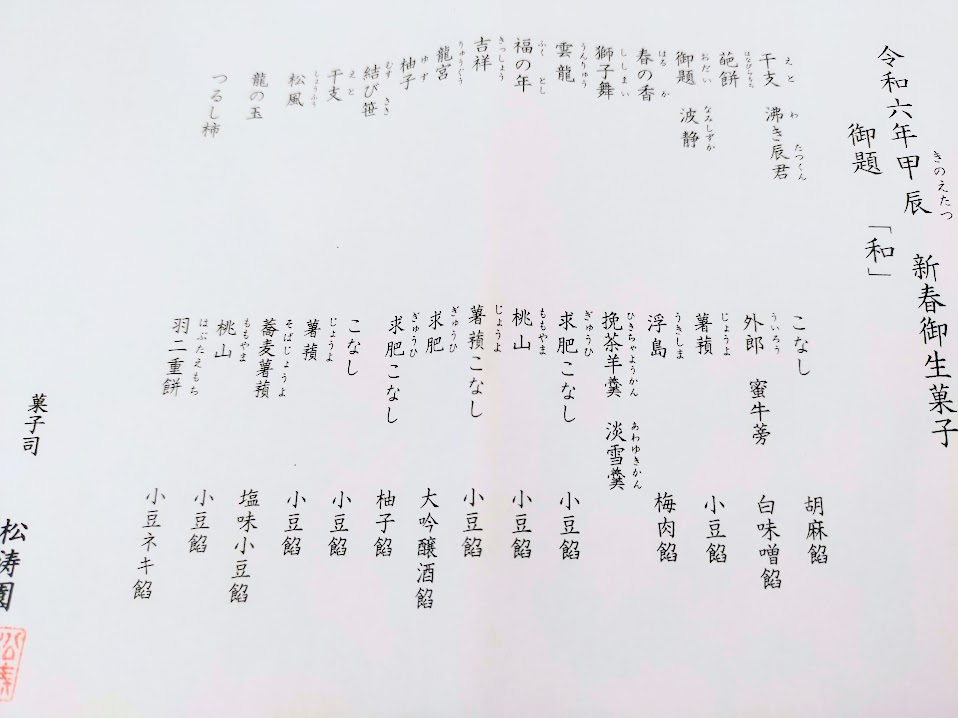 きのえたつ
令和六年甲辰 新春御生菓子
御題「和」
えと わ たつくん
干支 沸き辰君 こなし 胡麻餡
はなびらもち ういろう
葩餅 外郎 蜜牛蒡 白味噌餡
おだい なみしずか じょうよ
御題 波静 薯蕷 小豆餡
はる か うきしま
春の香 浮島 梅肉餡
ししまい ひきちゃようかん あわゆきかん
獅子舞 挽茶羊羹 淡雪羹
うんりゅう ぎゅうひ
雲龍 求肥こなし 小豆餡
ふく とし ももやま
福の年 桃山 小豆餡
きっしょう じょうよ
吉祥 薯蕷こなし 小豆餡
りゅうぐう ぎゅうひ
龍宮 求肥 大吟醸酒餡
ゆず ぎゅうひ
柚子 求肥こなし 柚子餡
むす ささ
結び笹 こなし 小豆餡
えと じょうよ
干支 薯蕷 小豆餡
しょうふう そばじょうよ
松風 蕎麦薯蕷 塩味小豆餡
ももやま
龍の玉 桃山 小豆餡
はぶたえもち
つるし柿 羽二重餅 小豆ネキ餡
菓子司 松涛園